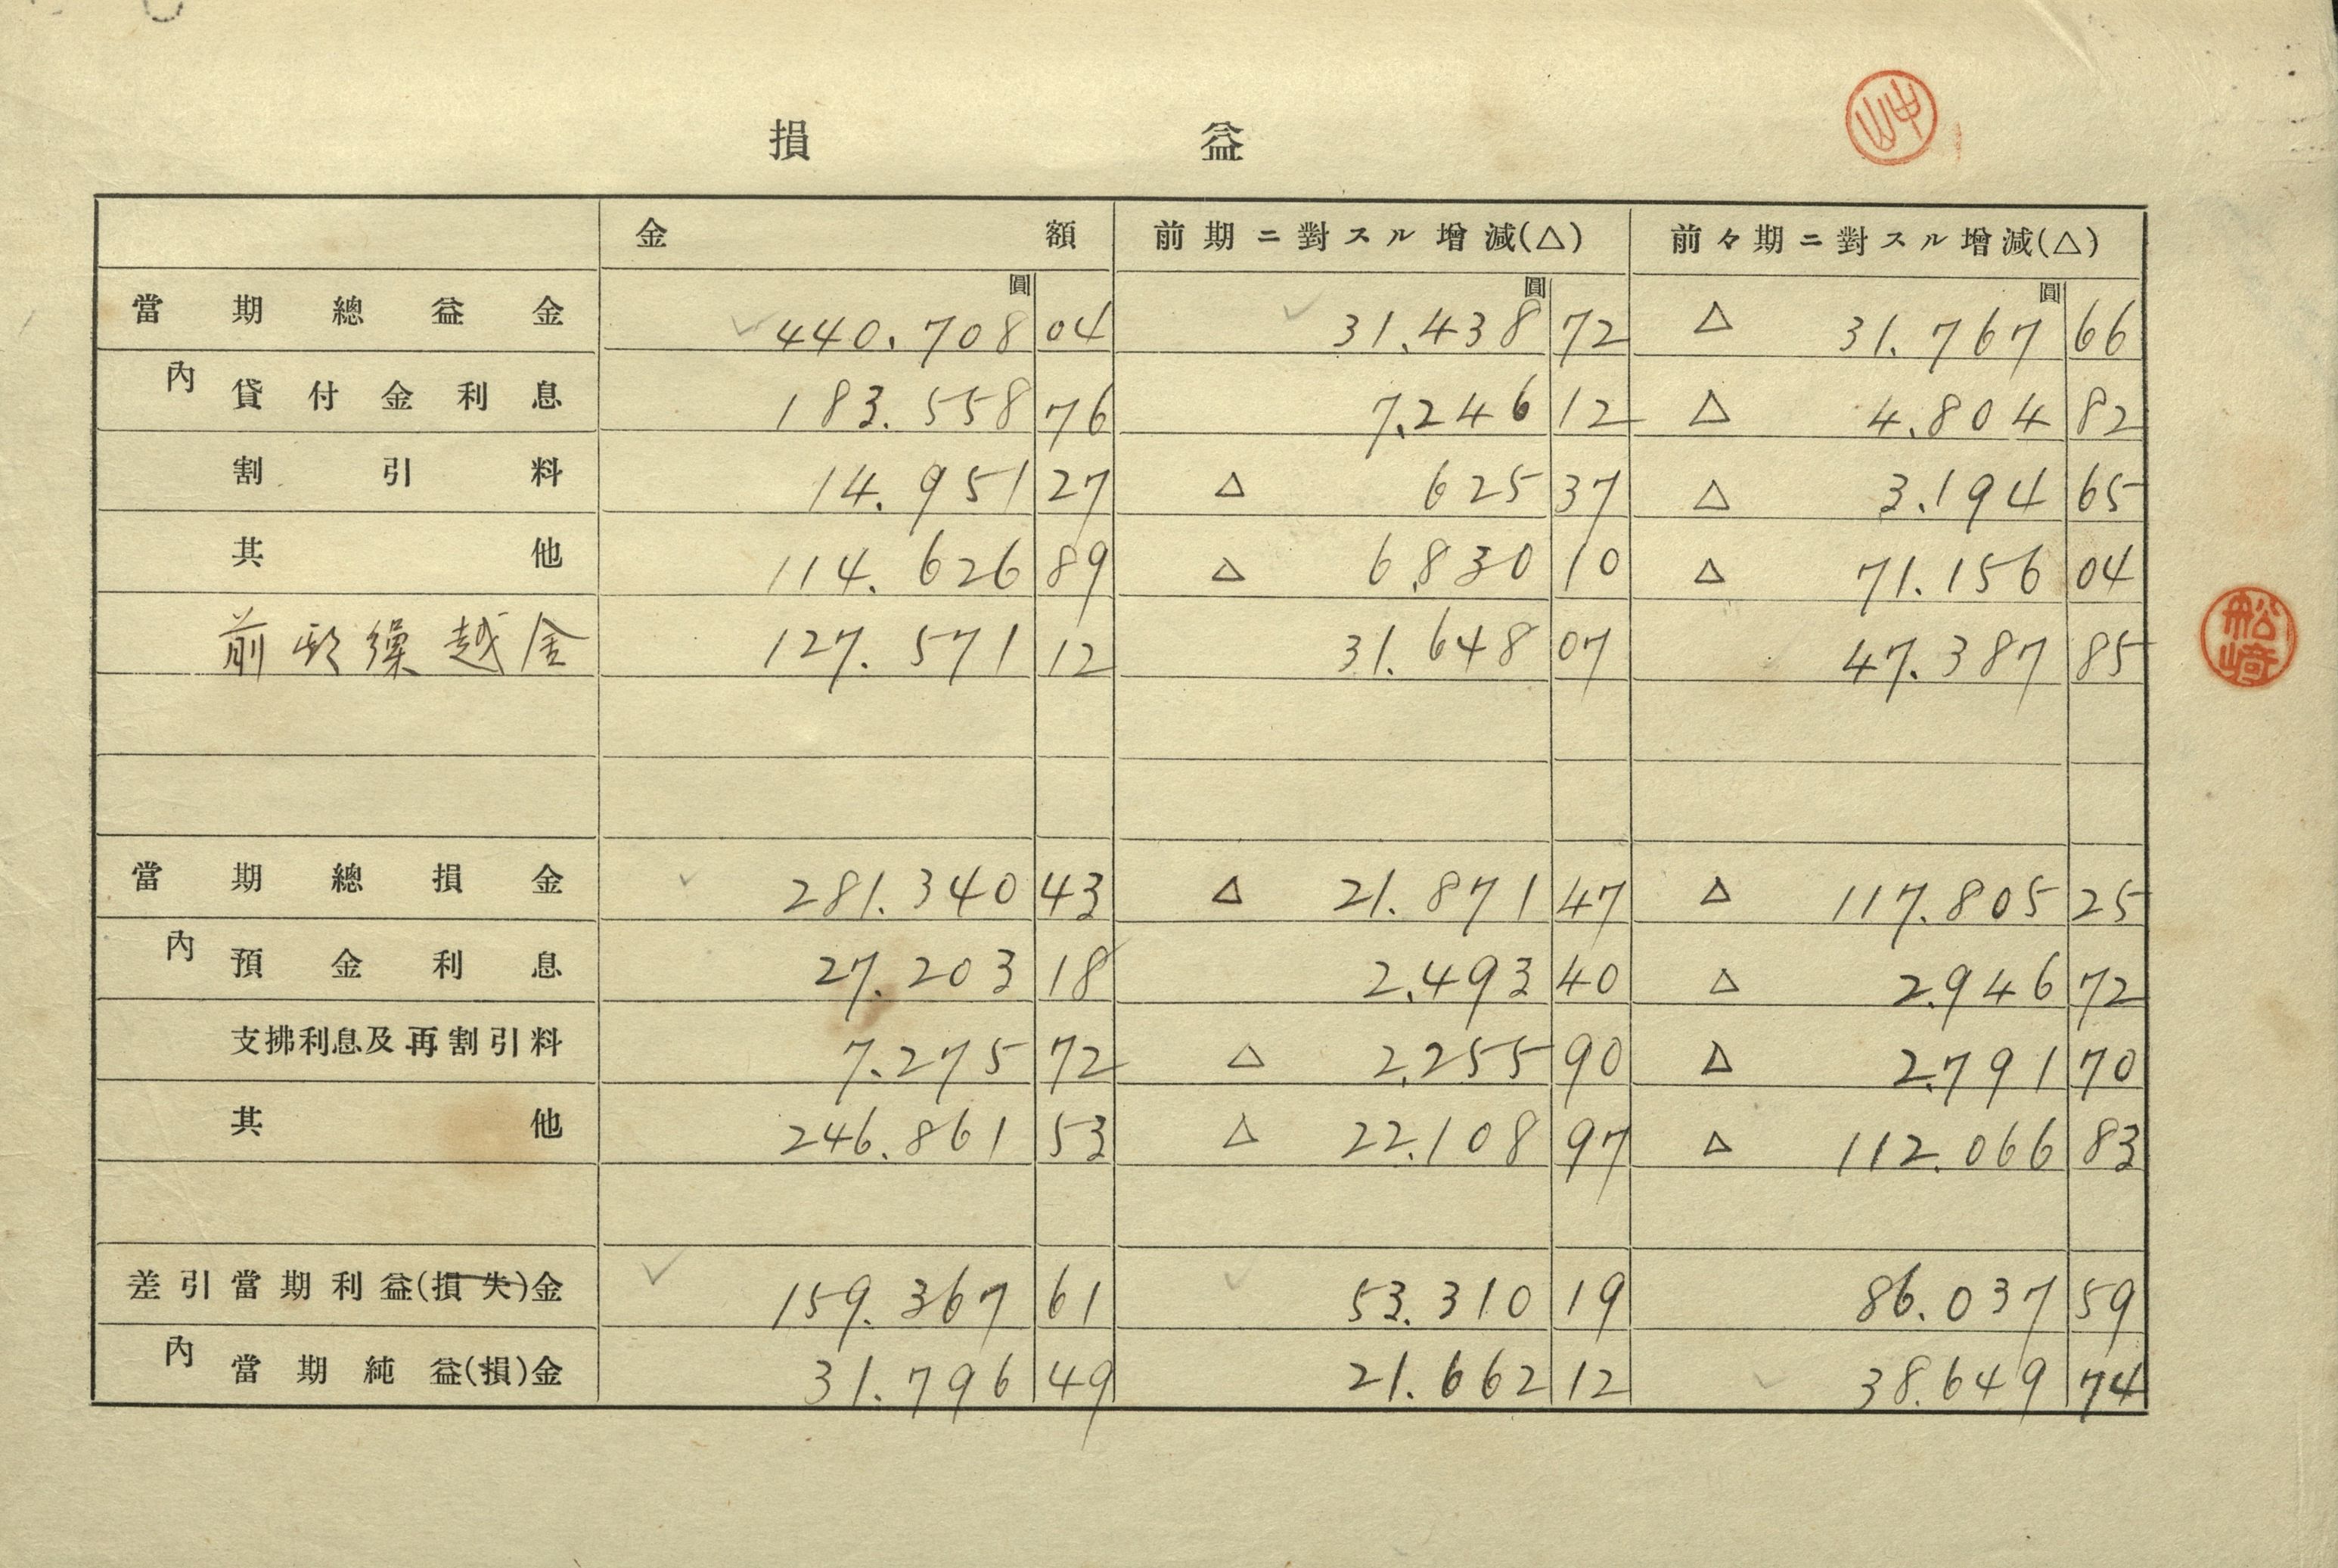 中山
損益
金額 前期ニ對スル增減(△) 前々期ニ對スル增減(△)
圓 圓 圓
當期總益金 440.708 04 31.438 72 △ 31.767 66
內 貸付金利息 183.558 76 7.246 12 △ 4.804 82
割引料 14.951 27 △ 625 37 △ 3.194 65
其他 114.626 89 △ 6.830 10 △ 71.156 04
前期繰越金 127.571 12 31.648 07 47.387 85
舩﨑
當期總損金 281.340 43 △ 21.871 47 △ 117.805 25
內 預金利息 27.203 18 2.493 40 △ 2.946 72
支拂利息及再割引料 7.275 72 △ 2.255 90 △ 2.791 70
其他 246.861 53 △ 22.108 97 △ 112.066 83
差引當期利益(損失)金 159.367 61 53.310 19 86.037 59
內 當期純益(損)金 31.796 49 21.662 12 38.649 74